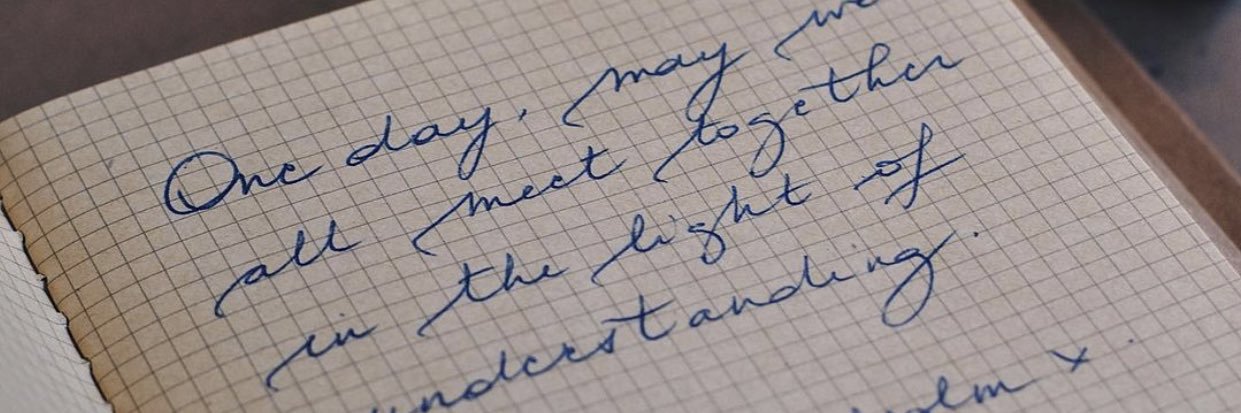 One day, may we
all meet together
in the light of
understanding.